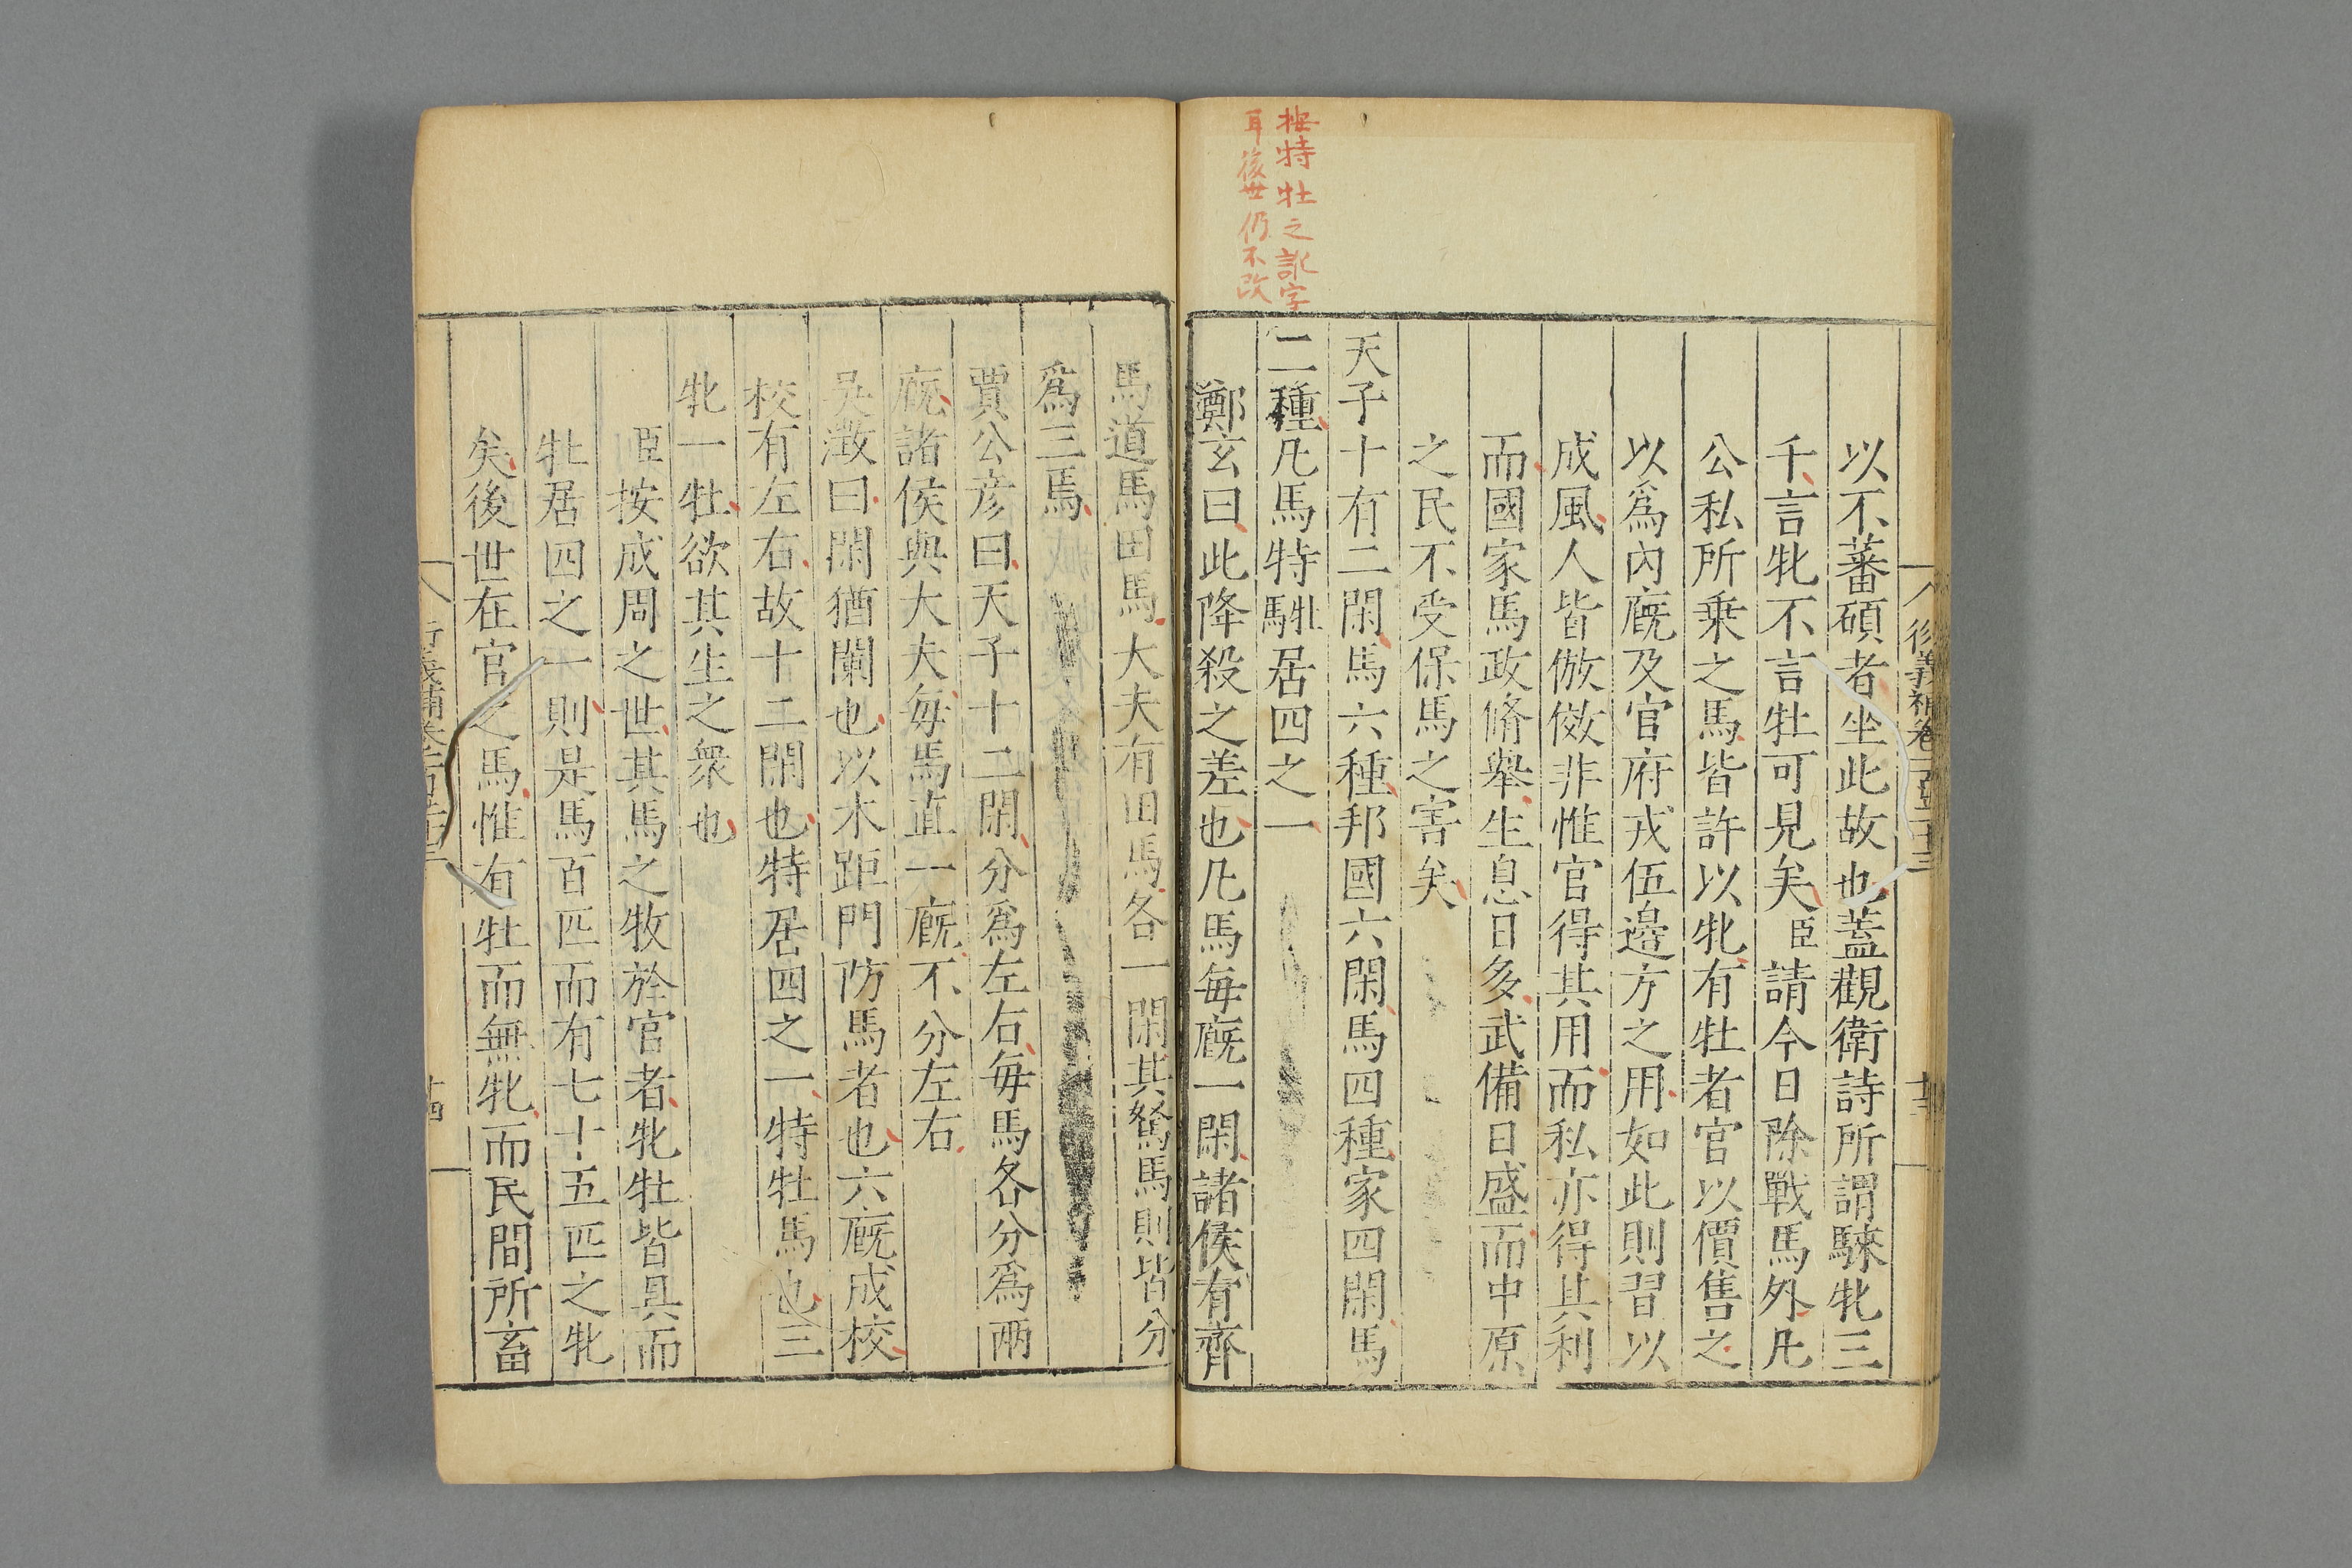 按特牡之訛字
耳後世仍不改
以不蕃碩者坐此故也蓋觀衛詩所謂騋牝三
千言牝不言牡可見矣臣請今日除戰馬外凡
公私所乗之馬皆許以牝有牡者官以價售之
以爲內廐及官府戎伍邊方之用如此則習以
成風人皆倣傚非惟官得其用而私亦得其利
而國家馬政脩舉生息日多武備日盛而中原
之民不受保馬之害矣
天子十有二閑馬六種邦國六閑馬四種家四閑馬
二種凡馬特駈居四之一
鄭玄曰此降殺之差也凡馬每廐一閑諸侯有齊
馬道馬田馬大夫有田馬各一閑其駑馬則皆分
爲三焉
賈公彦曰天子十二閑分爲左右每馬各分爲兩
廐諸侯與大夫每馬直一廐不分左右
吳澂曰閑猶闌也以木距門防馬者也六廐成校
校有左右故十二閑也特居四之一特牡馬也三
牝一牡欲其生之衆也
臣按成周之世其馬之牧於官者牝牡皆具而
牡居四之一則是馬百匹而有七十五匹之牝
矣後世在官之馬惟有牡而無牝而民間所畜